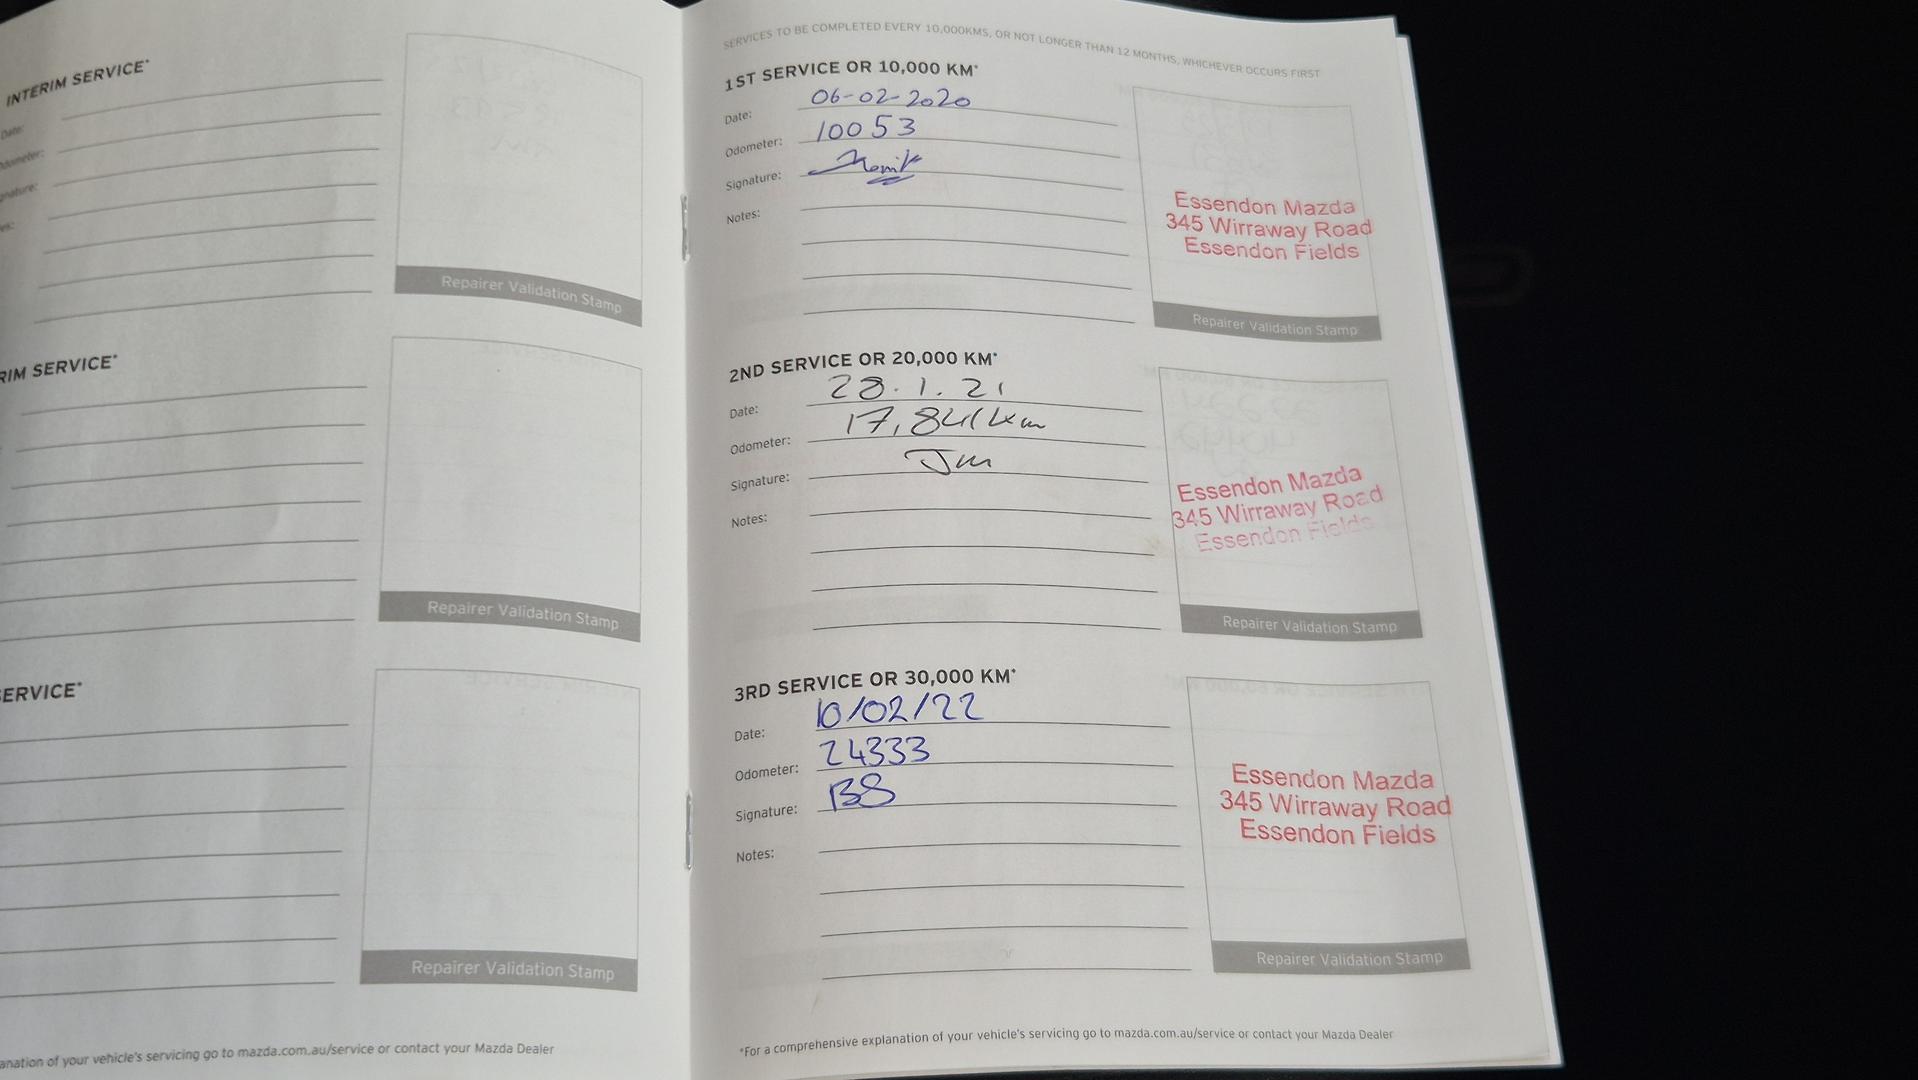 INTERIM SERVICE*
Date:
Odometer:
Repairer Validation Stamp
RIM SERVICE*
Repairer Validation Stamp
ERVICE*
Repairer Validation Stamp
anation of your vehicle's servicing go to mazda.com.au/service or contact your Mazda Dealer
SERVICES TO BE COMPLETED EVERY 10,000KMS, OR NOT LONGER THAN 12 MONTHS, WHICHEVER OCCURS FIRST
1ST SERVICE OR 10,000 KM*
Date: 06-02-2020
Odometer: 10053
Signature:
Notes:
Essendon Mazda
345 Wirraway Road
Essendon Fields
Repairer Validation Stamp
2ND SERVICE OR 20,000 KM*
Date: 28.1.21
Odometer: 17,841km
Signature: Jm
Notes:
Essendon Mazda
345 Wirraway Road
Essendon Fields
Repairer Validation Stamp
3RD SERVICE OR 30,000 KM*
Date: 10/02/22
Odometer: 24333
Signature: BS
Notes:
Essendon Mazda
345 Wirraway Road
Essendon Fields
Repairer Validation Stamp
*For a comprehensive explanation of your vehicle's servicing go to mazda.com.au/service or contact your Mazda Dealer